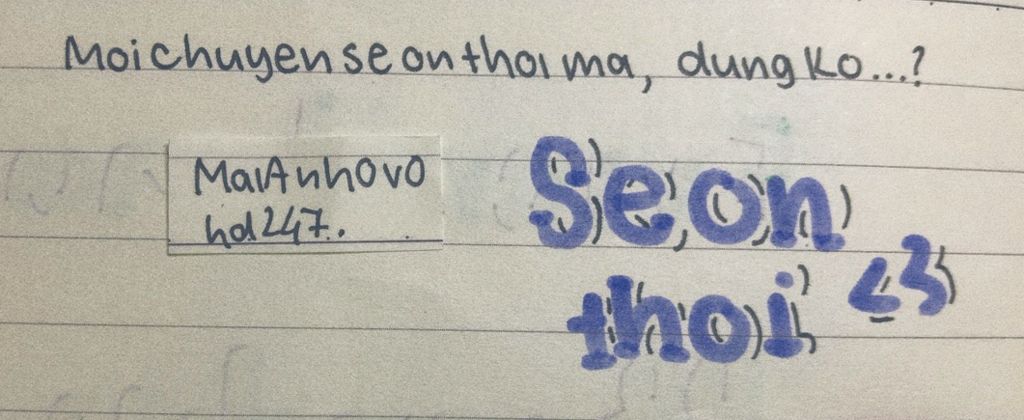 Moi chuyen se on thoi ma, dung ko...?
MaiAnh0v0
hd247.
Se on
thoi <3